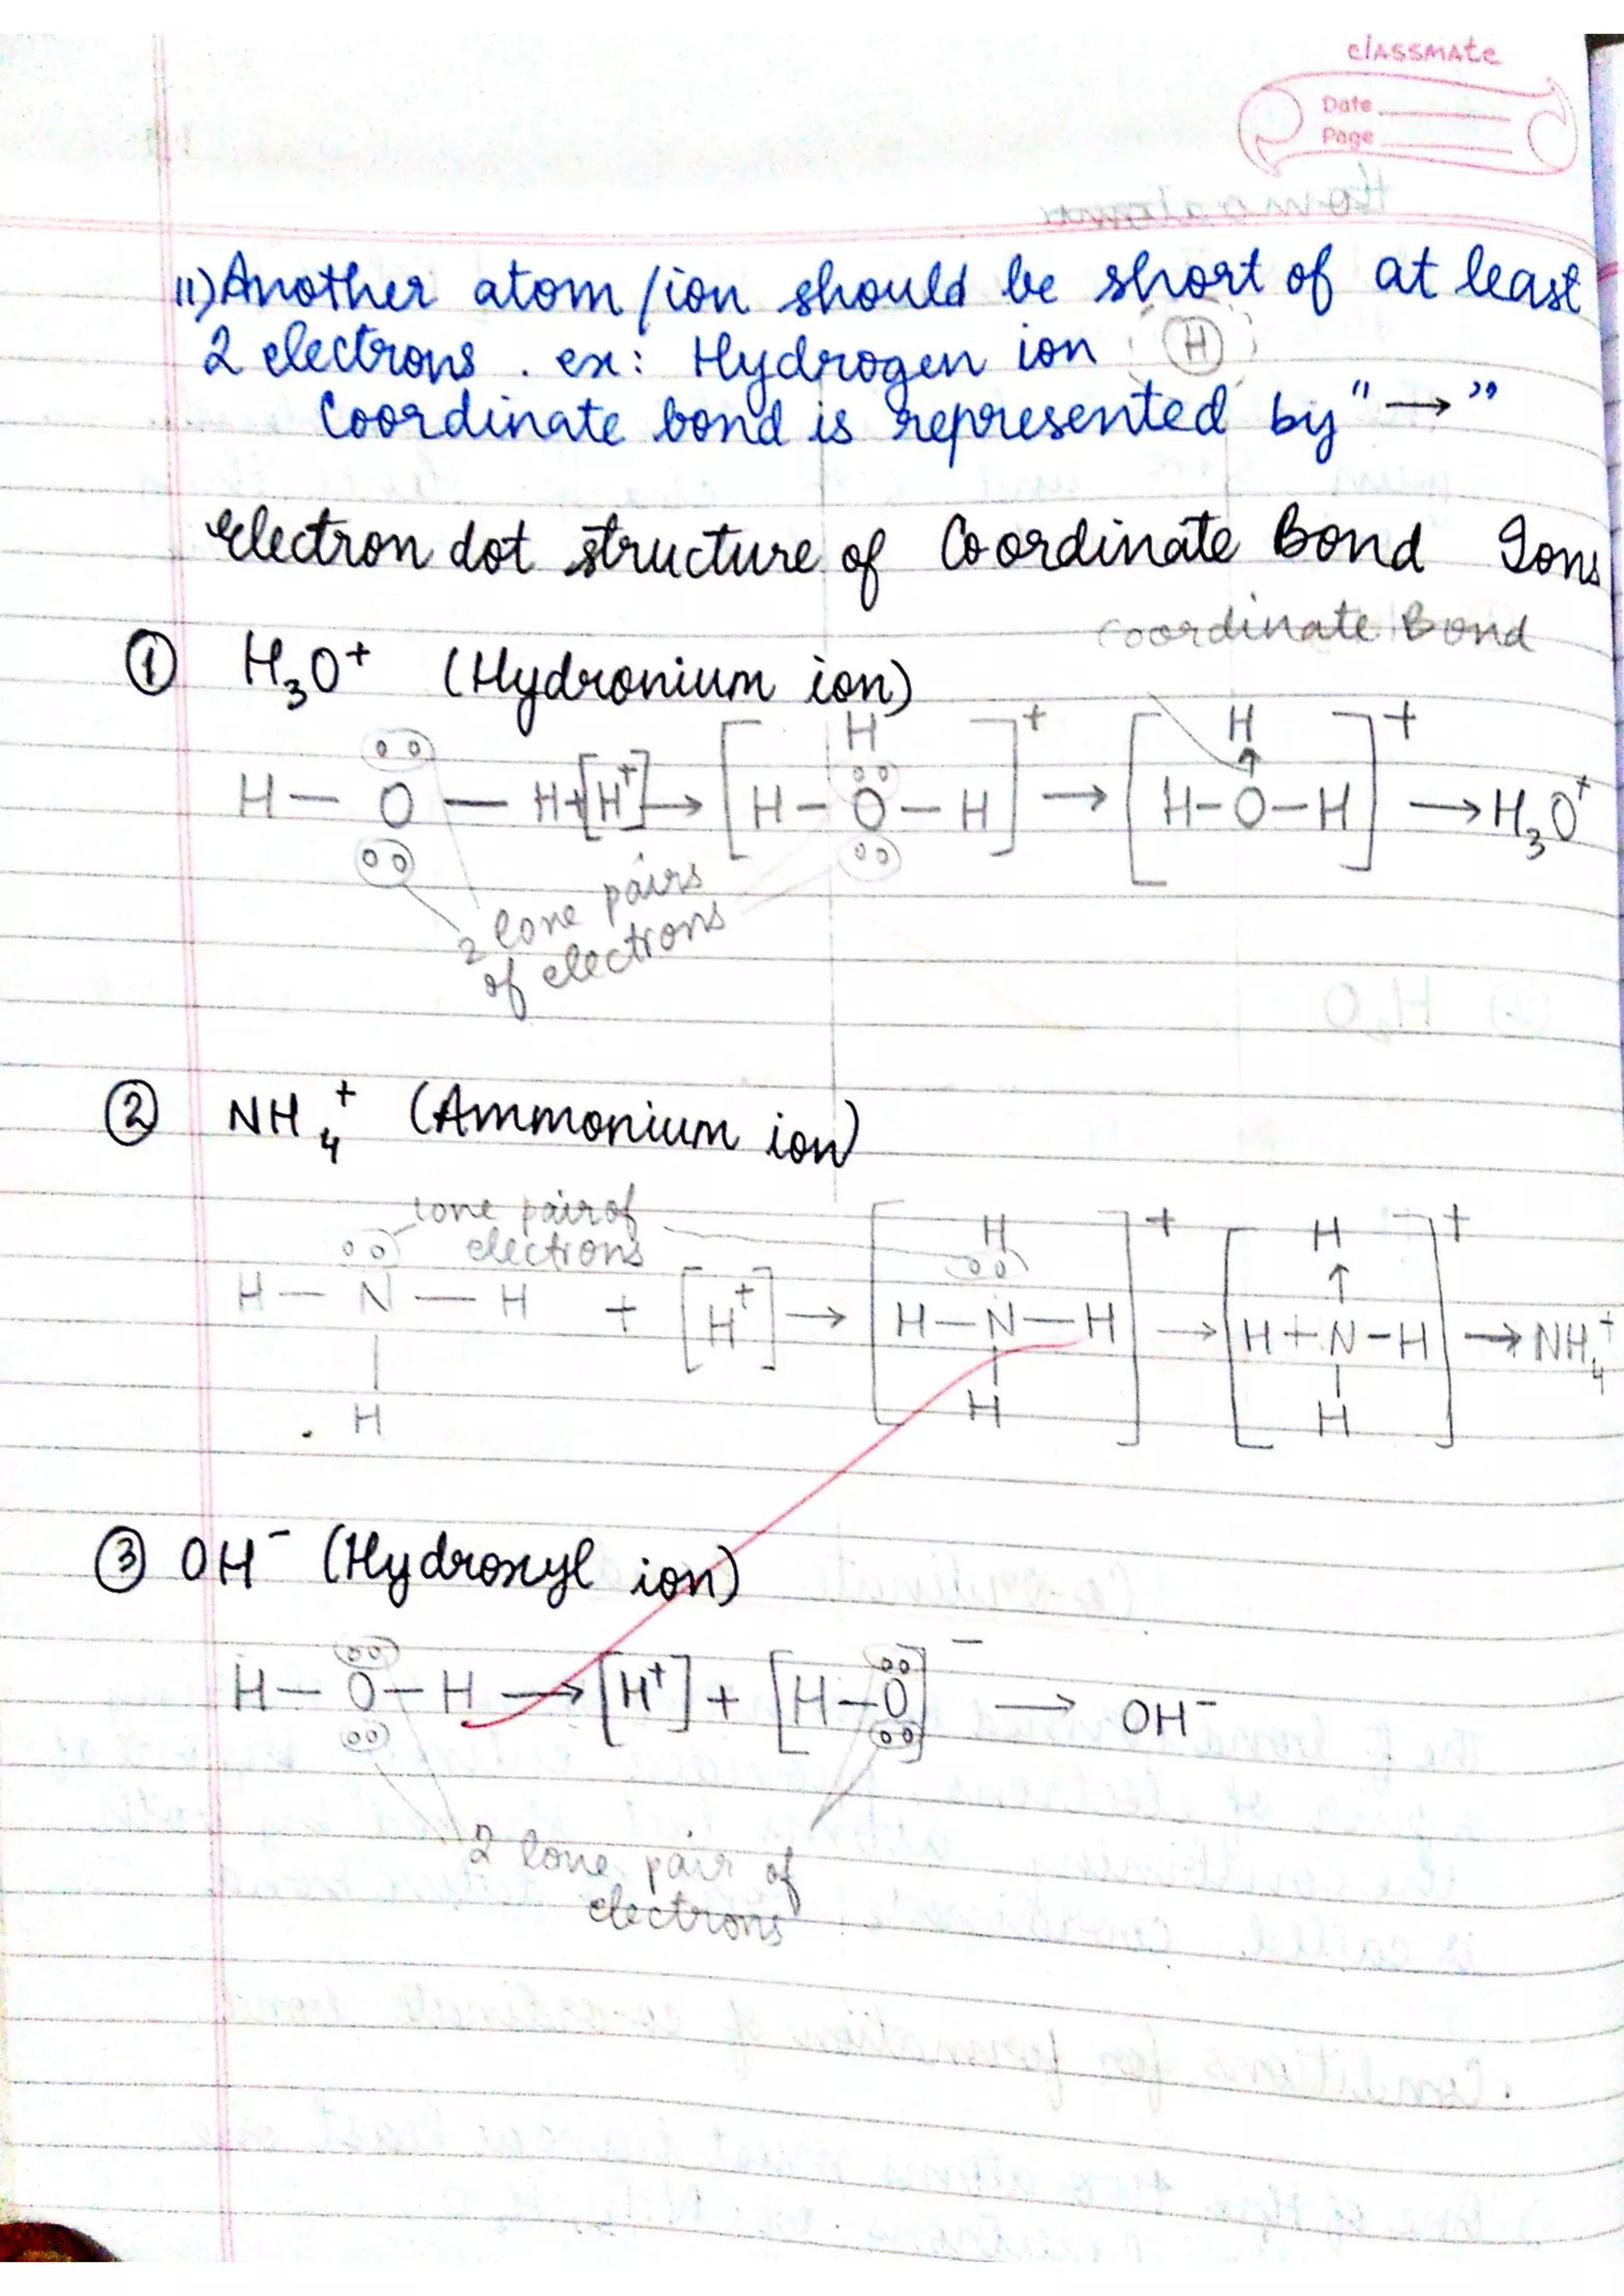 classmate
Date
Page
11) Another atom/ion should be short of at least
2 electrons. ex: Hydrogen ion (H)
Coordinate bond is represented by "→"
Electron dot structure of Coordinate Bond Ions
Coordinate Bond
① H₃O⁺ (Hydronium ion)
H — O — H + [H⁺] → [H – O – H H]⁺ → [H – O – H ↑ H]⁺ → H₃O⁺
2 lone pairs
of electrons
② NH₄⁺ (Ammonium ion)
lone pair of
electrons
H — N — H + [H⁺] → [H — N — H H]⁺ → [H – N – H ↑ H]⁺ → NH₄⁺
H H H
③ OH⁻ (Hydroxyl ion)
H — O — H → [H⁺] + [H — O]⁻ → OH⁻
2 lone pair of
electrons